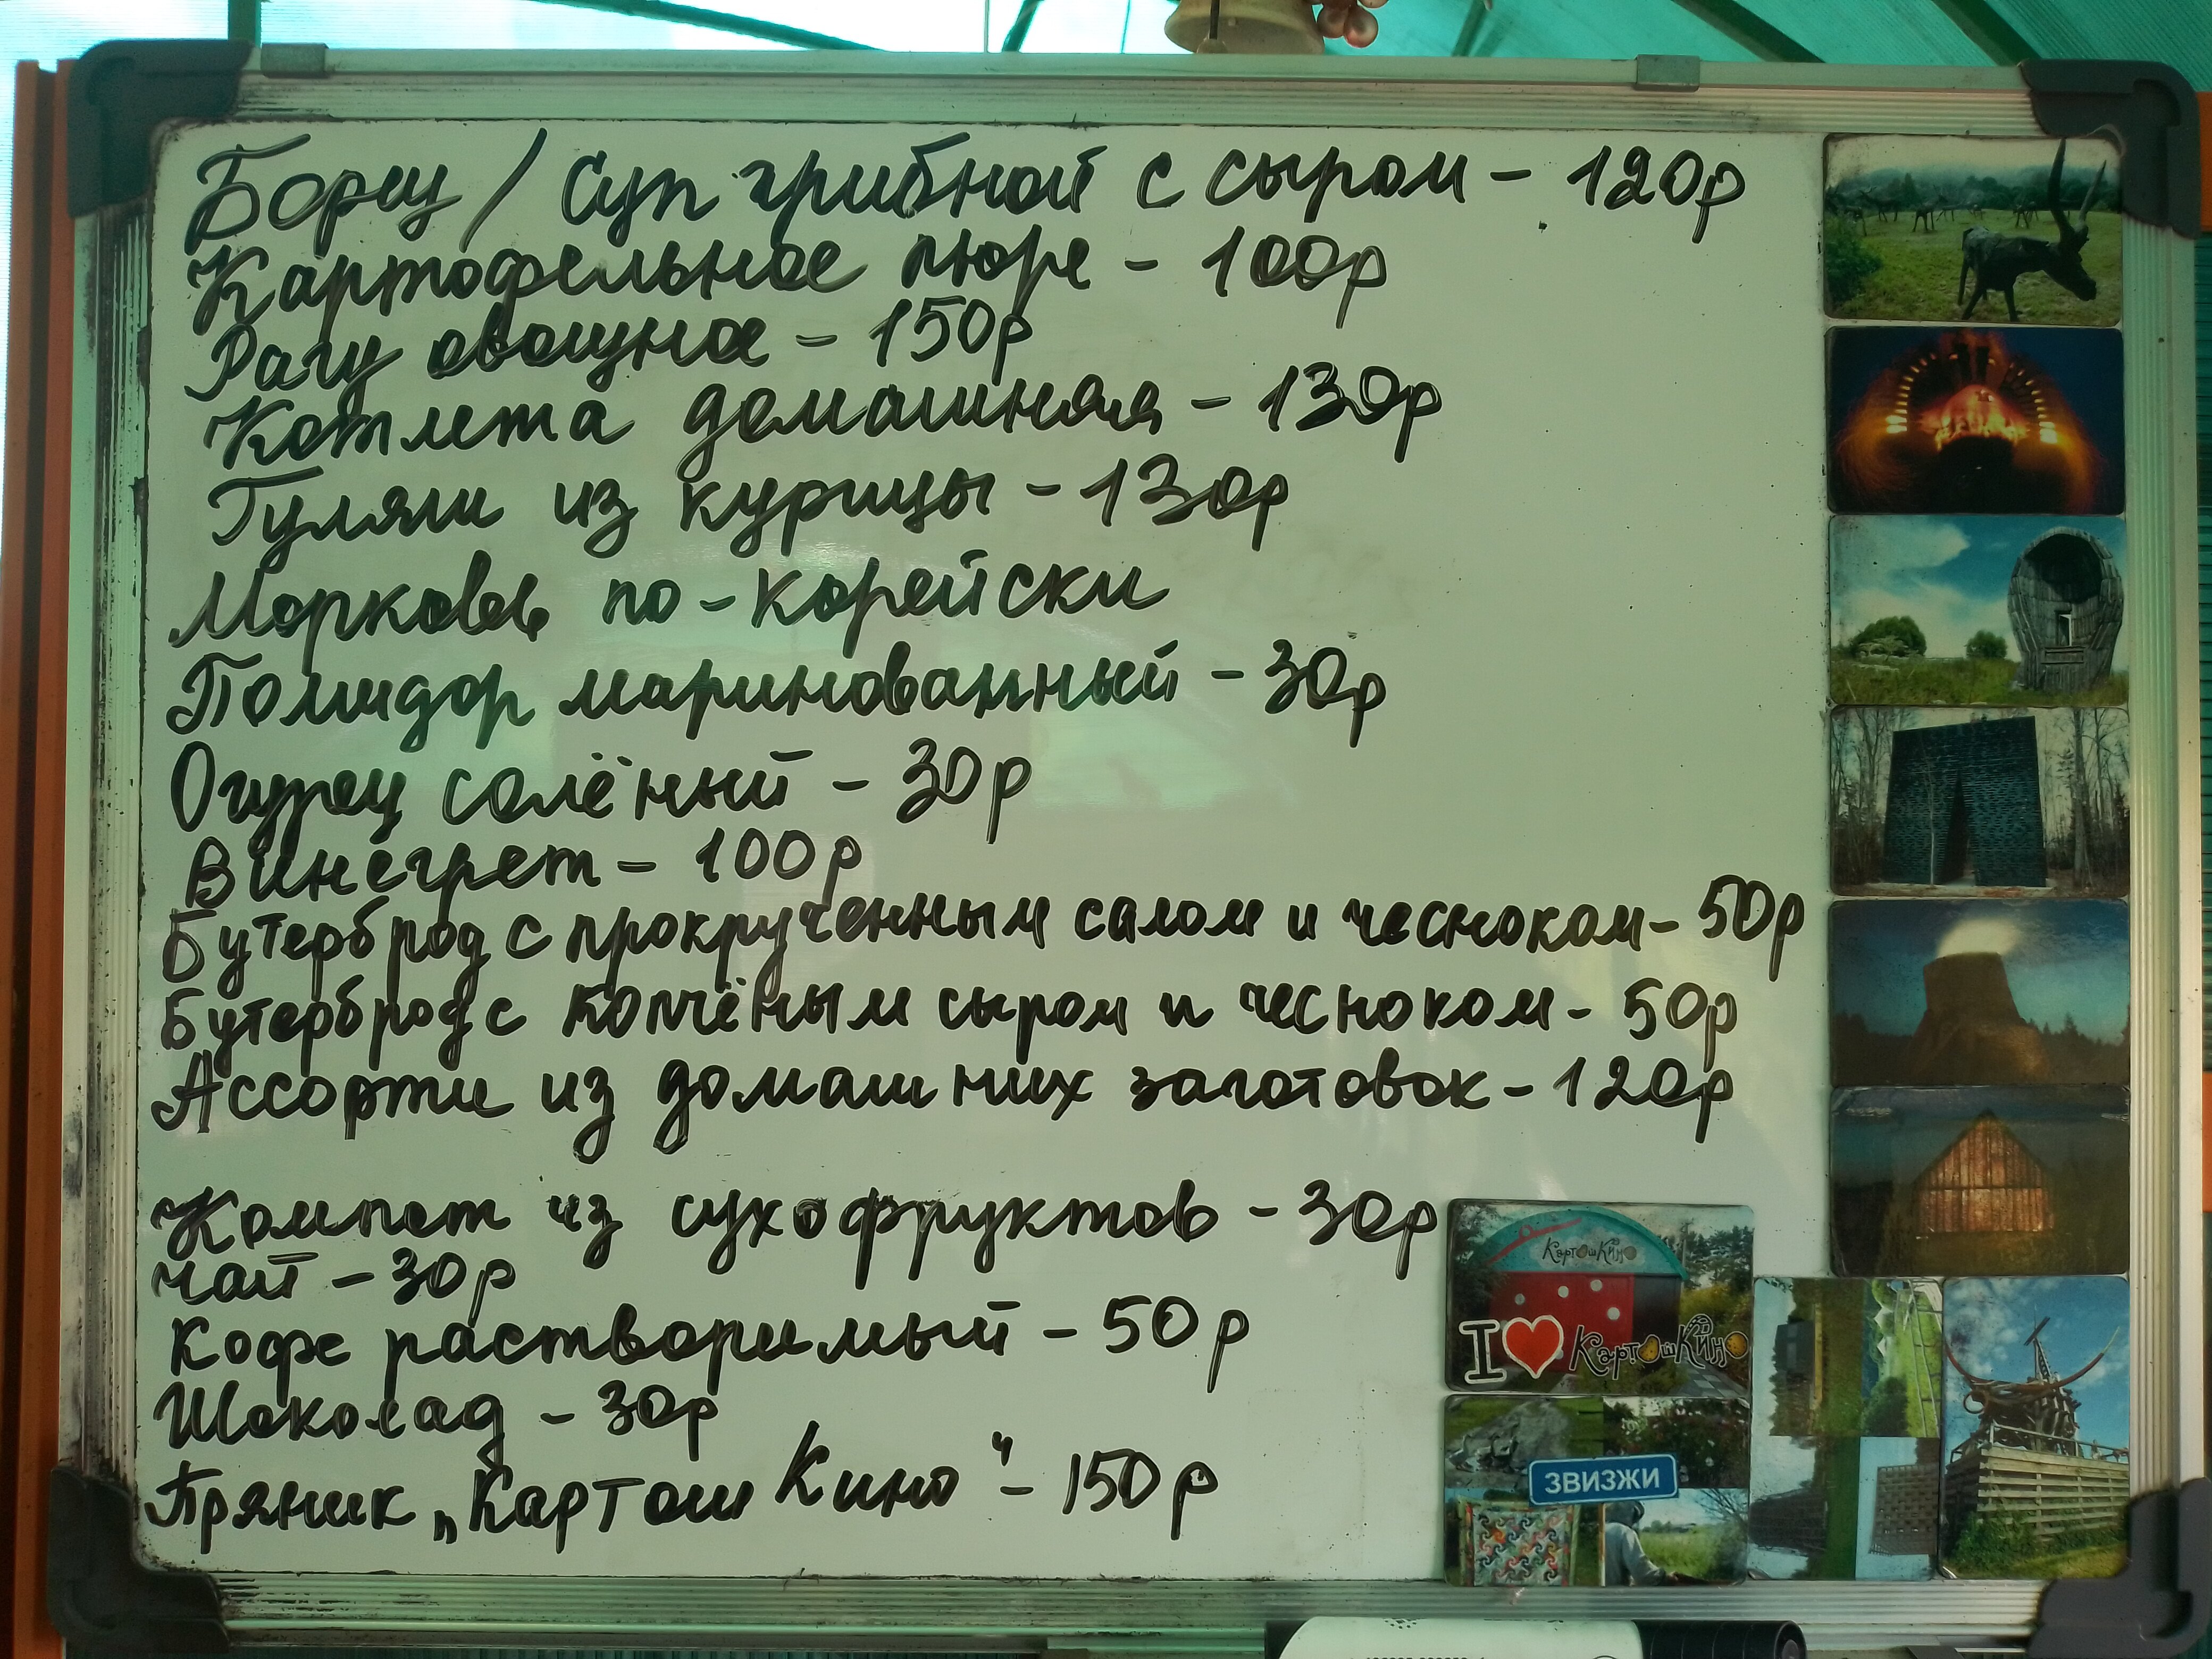 Борщ / Суп грибной с сыром - 120р
Картофельное пюре - 100р
Рагу овощное - 150р
Котлета домашняя - 130р
Гуляш из курицы - 130р
Морковь по-корейски
Помидор маринованный - 30р
Огурец солёный - 30р
Винегрет - 100р
Бутерброд с прокрученным салом и чесноком - 50р
Бутерброд с копчёным сыром и чесноком - 50р
Ассорти из домашних заготовок - 120р
Компот из сухофруктов - 30р
Чай - 30р
Кофе растворимый - 50р
Шоколад - 30р
Пряник „Картош Кино" - 150р
КартошКино
I КартошКино
ЗВИЗЖИ